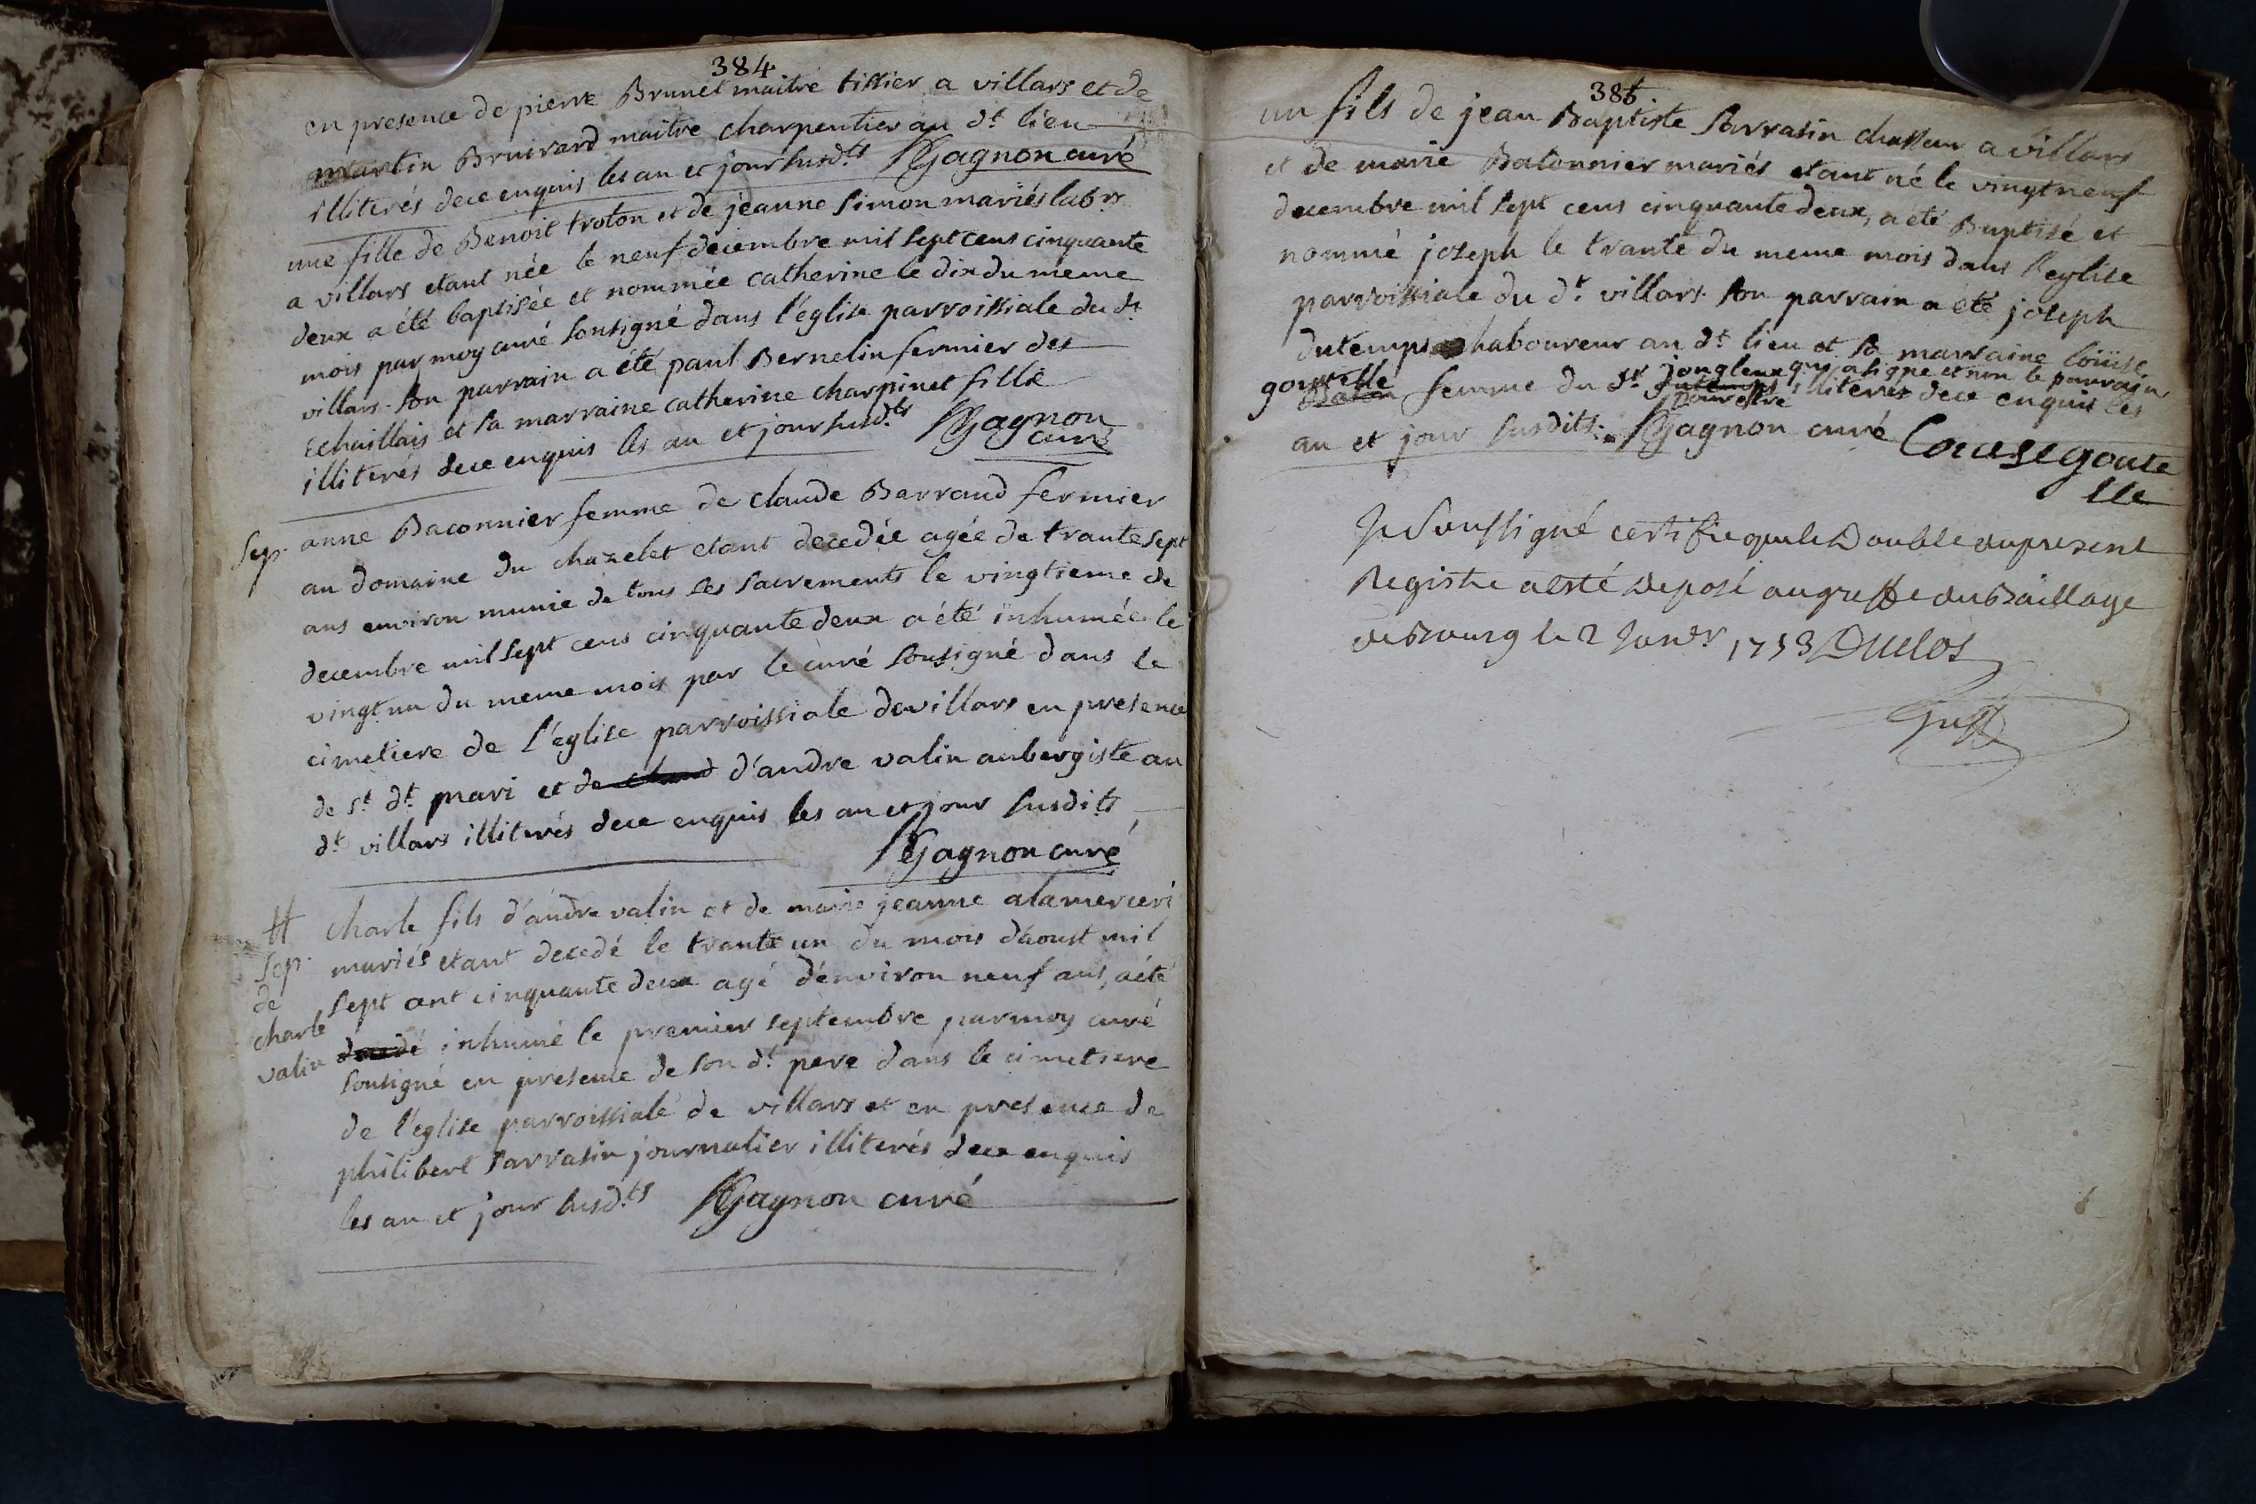 384
en presence de pierre Brunet maitre tissier a villars et de
martin Bruirard maitre charpentier au dt lieu
illiterés de ce enquis les an et jour susdts Gagnon curé
une fille de Benoit troton et de jeanne simon mariés labrs
a villars etant née le neuf decembre mil sept cens cinquante
deux a été baptisée et nommée catherine le dix du meme
mois par moy curé sousigné dans l'eglise parroissiale du dt
villars. son parrain a été paul Bernelin fermier des
Echaillais et sa marraine catherine charpinet fille
illiterés de ce enquis les an et jour susdts Gagnon
curé
Sep. anne Baconnier femme de claude Barraud fermier
au domaine du chazelet etant decedée agée de trante sept
ans environ munie de tous ses sacrements le vingtieme de
decembre mil sept cens cinquante deux a été inhumée le
vingt un du meme mois par le curé sousigné dans le
cimetiere de l'eglise parroissiale de villars en presence
de st dt mari et de claud d'andre valin aubergiste au
dt villars illiterés de ce enquis les an et jour susdits
Gagnon curé
Sep.
de
charle
valin
charle fils d'andre valin et de marie jeanne alamerceri
mariés etant decedé le trante un du mois d'aoust mil
sept cent cinquante deux agé d'environ neuf ans, a été
decedé inhumé le premier septembre par moy curé
sousigné en presence de son dt pere dans le cimetiere
de l'eglise parroissiale de villars et en presence de
philibert sarrasin journalier illiterés de ce enquis
les an et jour susdts Gagnon curé
385
un fils de jean Baptiste sarrasin chasseur a villars
et de marie Batonnier mariés etant né le vingt neuf
decembre mil sept cens cinquante deux, a été Baptisé et
nommé joseph le trante du meme mois dans l'eglise
parroissiale du dt villars. son parrain a été joseph
dutemps laboureur au dt lieu et sa marraine loüise
goutelle femme du sr jongleux qui a signe et non le parrain
pour etre illiterés de ce enquis les
an et jour susdits. Gagnon curé Louise goute
lle
Je soussigné certifie que le Double du present
Registre a esté deposé au greffe du Baillage
de Bourg le 2 Janer 1753 Duclos
Greff